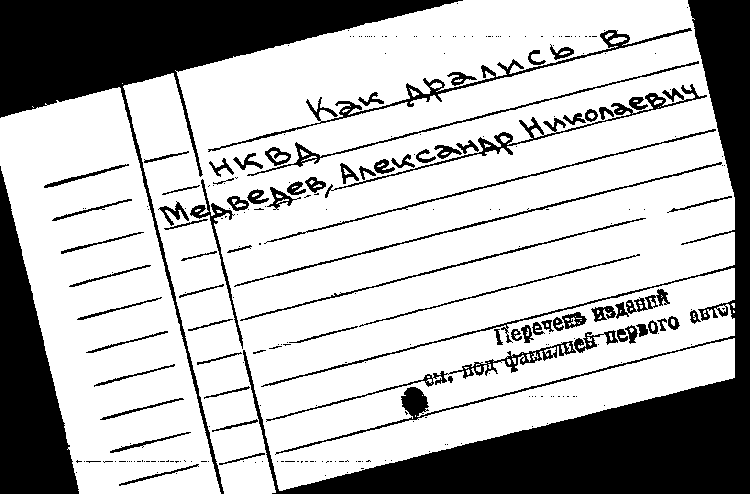 Как дрались в
НКВД
Медведев, Александр Николаевич
Перечень изданий
см. под фамилией первого автор